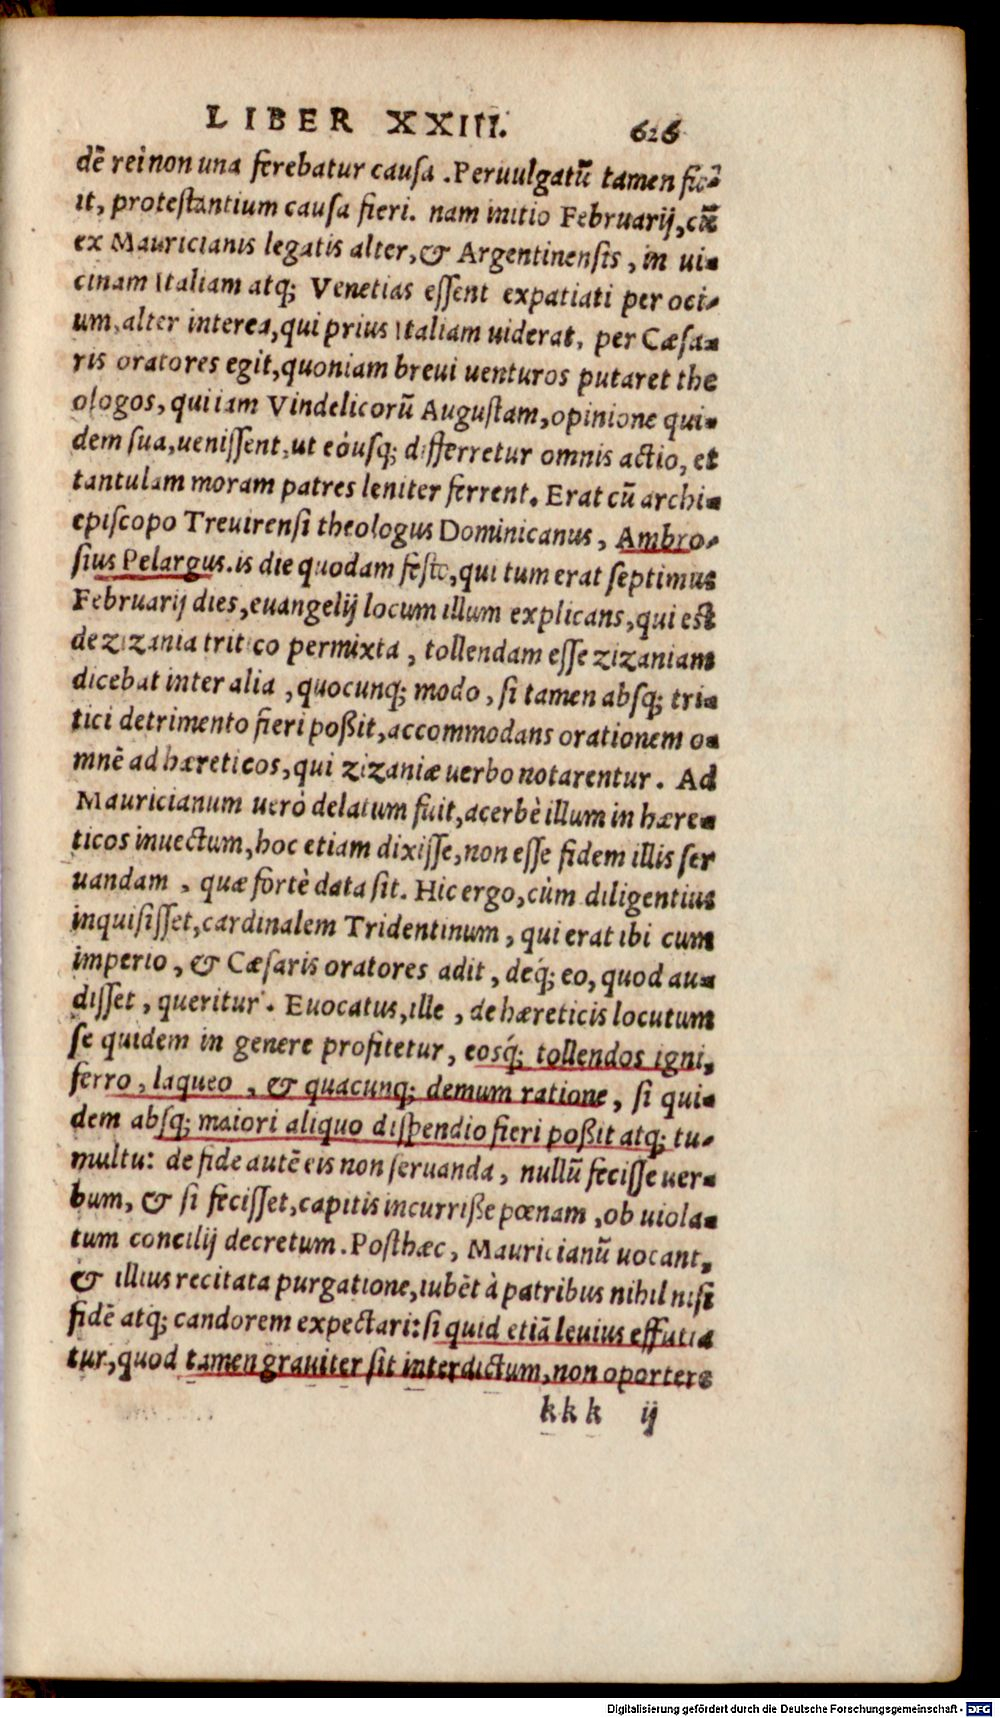 LIBER XXIII. 626
dē rei non una ferebatur causa . Peruulgatū tamen fu-
it, protestantium causa fieri. nam initio Februarij, cū
ex Mauricianis legatis alter, & Argentinensis, in ui-
cinam Italiam atq; Venetias essent expatiati per oci-
um, alter interea, qui prius Italiam uiderat, per Cæsa-
ris oratores egit, quoniam breui uenturos putaret the
ologos, qui iam Vindelicorū Augustam, opinione qui-
dem sua, uenissent, ut eòusq; differretur omnis actio, et
tantulam moram patres leniter ferrent. Erat cū archi-
episcopo Treuirensi theologus Dominicanus, Ambro-
sius Pelargus. is die quodam festo, qui tum erat septimus
Februarij dies, euangelij locum illum explicans, qui est
de zizania tritico permixta, tollendam esse zizaniam
dicebat inter alia, quocunq; modo, si tamen absq; tri-
tici detrimento fieri poßit, accommodans orationem o-
mnē ad hæreticos, qui zizaniæ uerbo notarentur. Ad
Mauricianum uerò delatum fuit, acerbè illum in hære-
ticos inuectum, hoc etiam dixisse, non esse fidem illis ser
uandam, quæ fortè data sit. Hic ergo, cùm diligentius
inquisisset, cardinalem Tridentinum, qui erat ibi cum
imperio, & Cæsaris oratores adit, deq́; eo, quod au-
disset, queritur. Euocatus, ille, de hæreticis locutum
se quidem in genere profitetur, eosq́; tollendos igni,
ferro, laqueo, & quacunq; demum ratione, si qui-
dem absq; maiori aliquo dispendio fieri poßit atq; tu-
multu: de fide autē eis non seruanda, nullū fecisse uer-
bum, & si fecisset, capitis incurriße pœnam, ob uiola-
tum concilij decretum. Posthæc, Mauricianū uocant,
& illius recitata purgatione, iubēt à patribus nihil nisi
fidē atq; candorem expectari: si quid etiā leuius effutia
tur, quod tamen grauiter sit interdictum, non oportere
kkk ij
Digitalisierung gefördert durch die Deutsche Forschungsgemeinschaft - DFG